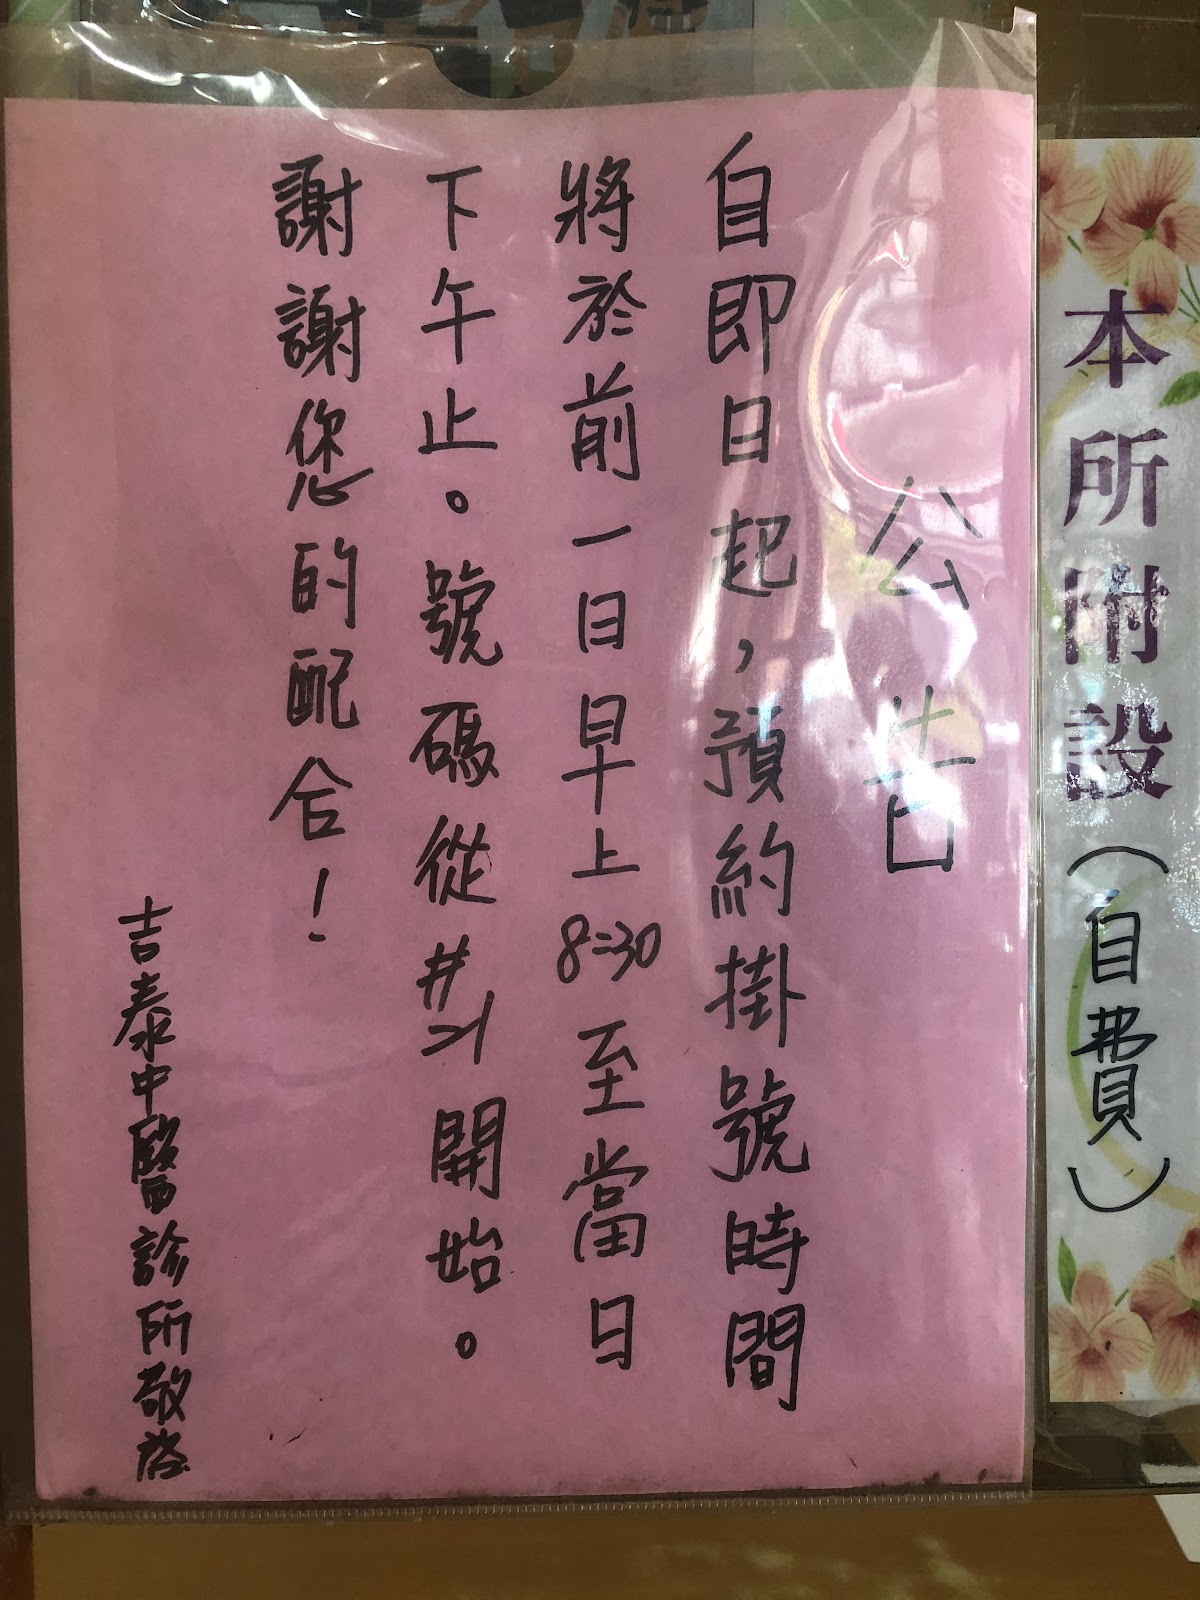 本所附設(自費)
公告
自即日起,預約掛號時間
將於前一日早上8:30至當日
下午止。號碼從#21開始。
謝謝您的配合!
吉泰中醫診所敬啟